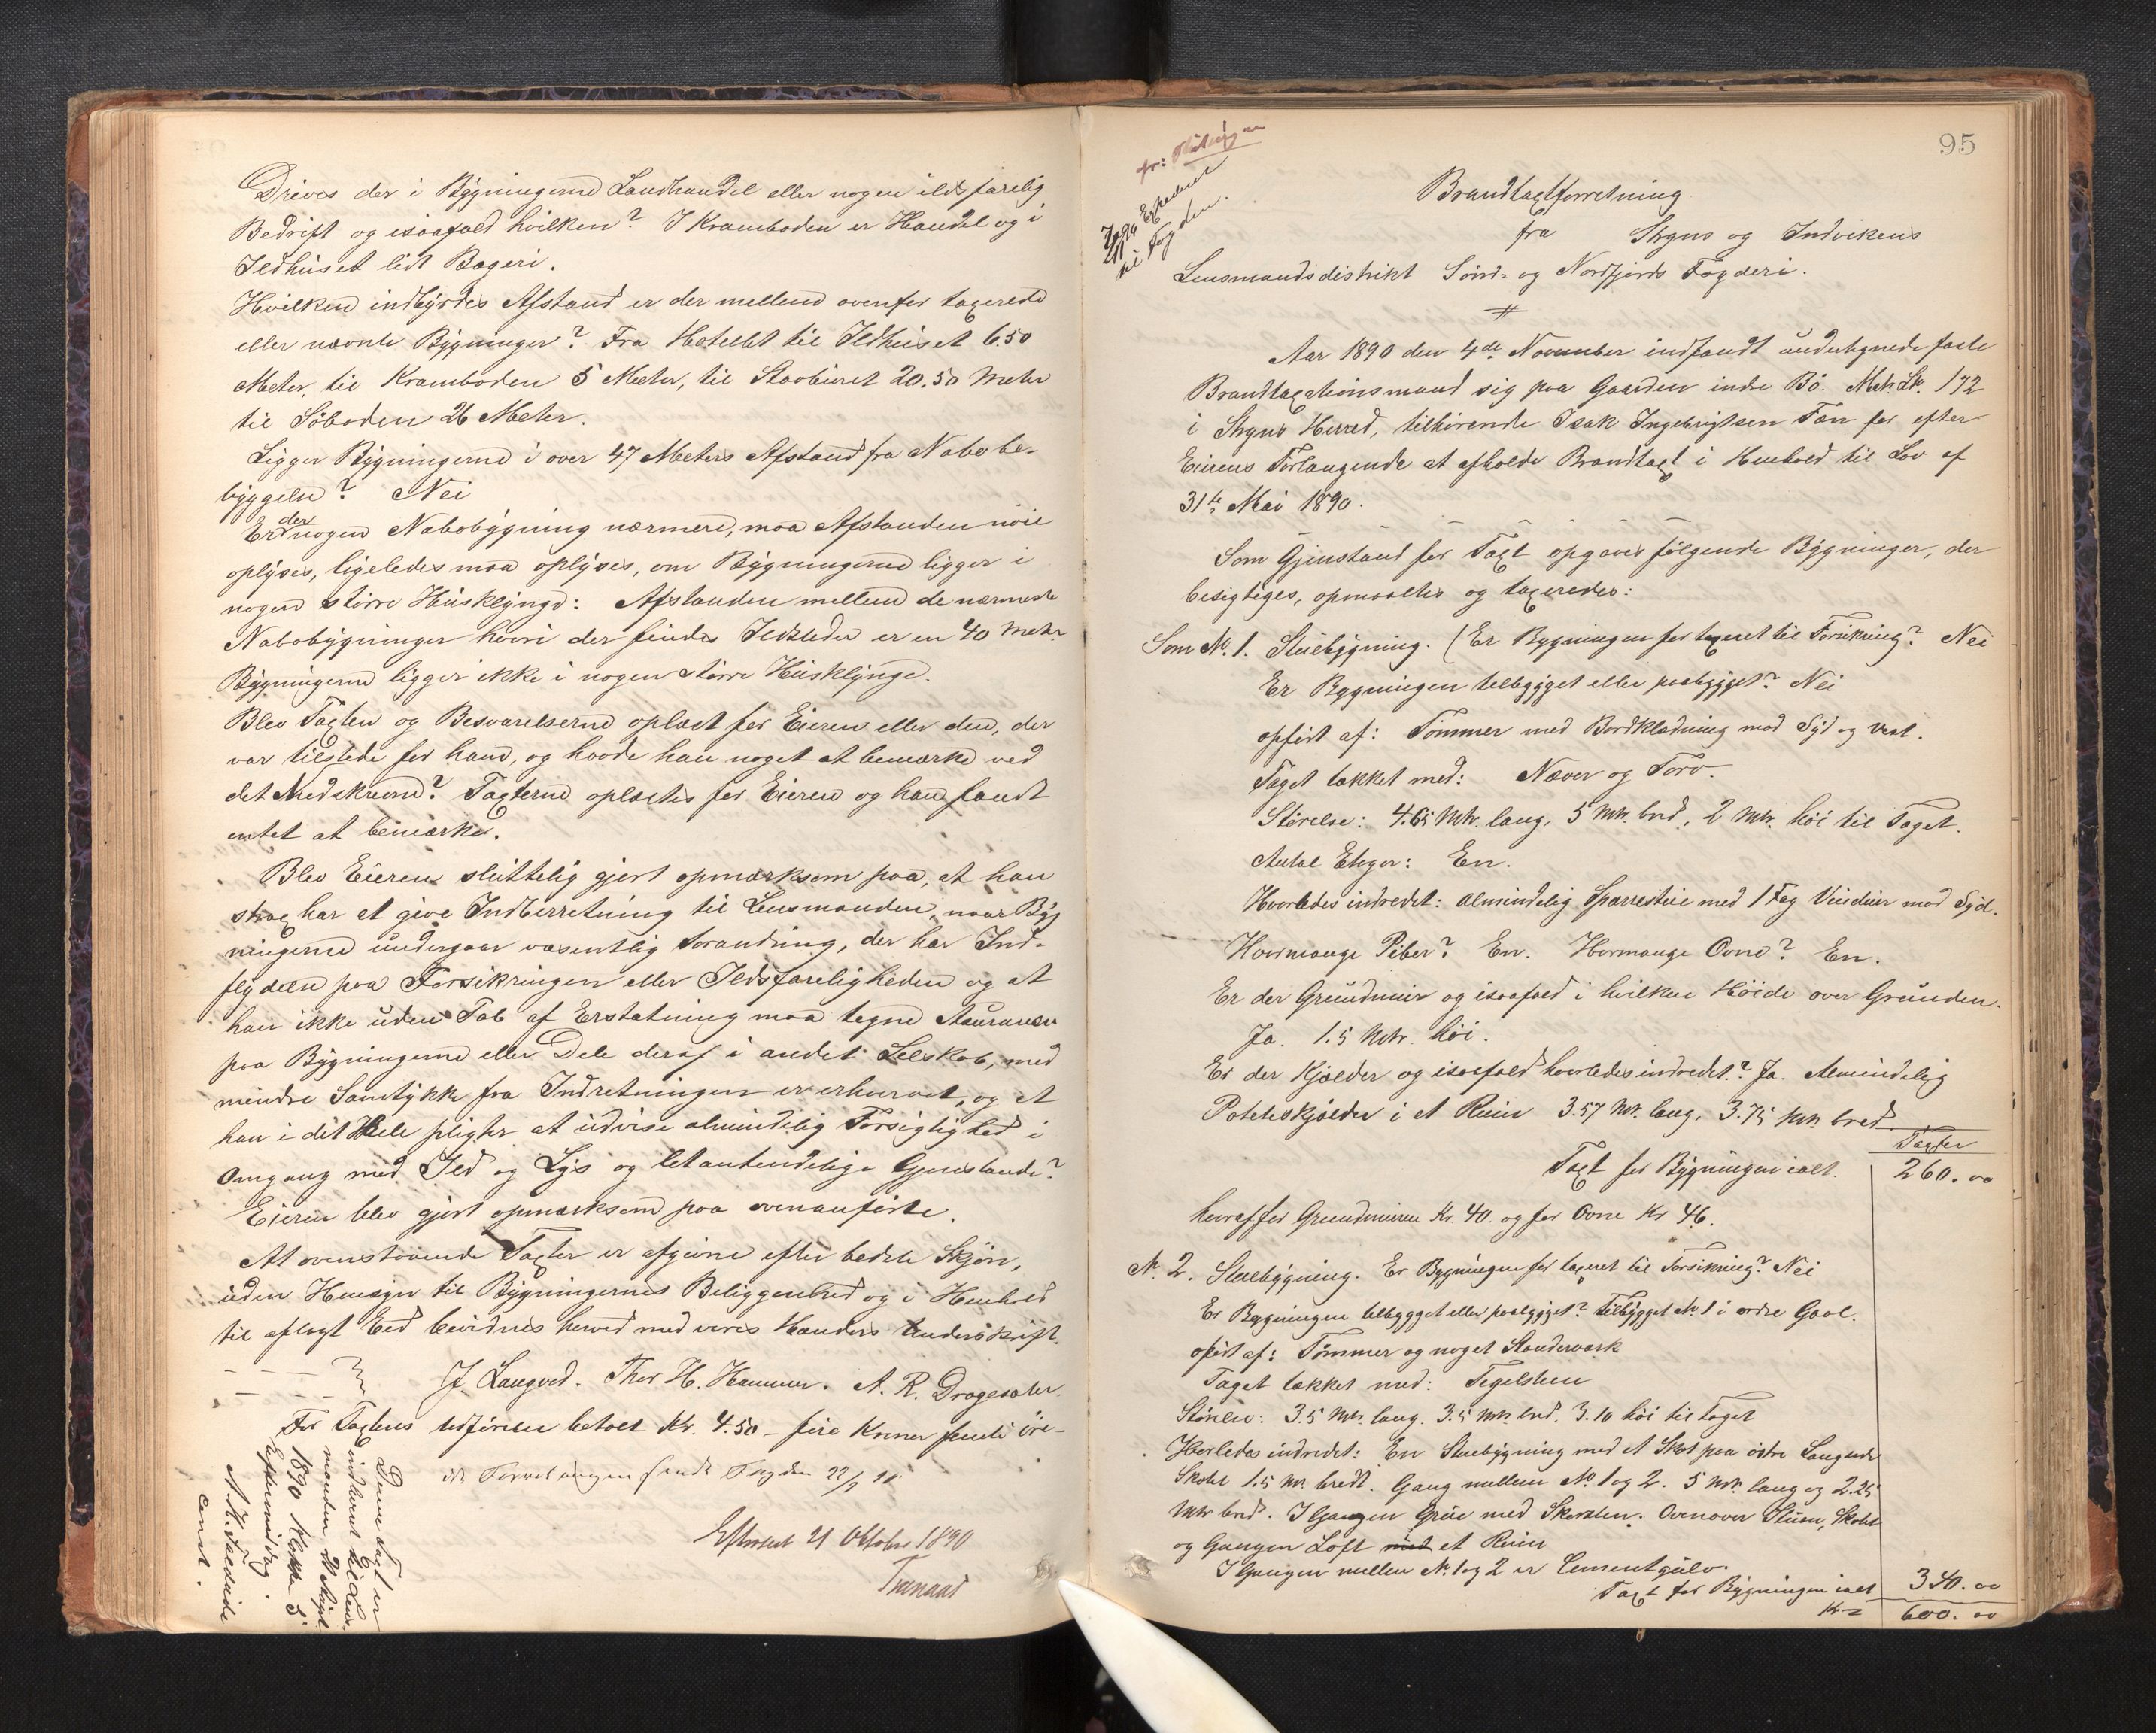 Drives der i Bygningerne Landhandel eller nogen ildsfarelig
Bedrift og isaafald hvilken? I Kramboden er Handel og i
Ildhuset lidt Bageri.
Hvilken indbyrdes Afstand er der mellem ovenfor taxerede
eller nævnte Bygninger? Fra Hotellet til Ildhuset 6.50
Meter, til Kramboden 5 Meter, til Stavburet 20.50 Meter
til Söboden 26 Meter.
Ligger Bygningerne i over 47 Meters Afstand fra Nabobe-
byggelse? Nei
Er der nogen Nabobygning nærmere, maa Afstanden nöie
oplyses, ligeledes maa oplyses, om Bygningerne ligger i
nogen större Husklynge: Afstanden mellem de nærmeste
Nabobygninger hvori der findes Ildsteder er en 40 Meter
Bygningerne ligger ikke i nogen större Husklynge.
Blev Taxten og Besvarelserne oplæst for Eieren eller den, der
var tilstede for ham, og havde han noget at bemærke ved
det Nedskrevne? Taxterne oplæstes for Eieren og han fandt
intet at bemærke.
Blev Eieren sluttelig gjort opmærksom paa, at han
strax har at give Indberetning til Lensmanden, naar Byg
ningerne undergaar væsentlig forandring, der har Ind-
flydelse paa Forsikringen eller Ildsfareligheden og at
han ikke uden Tab af Erstatning maa tegne Asurance
paa Bygningerne eller Dele deraf i andet Selskab, med
mindre Samtykke fra Indretningen er erhvervet, og at
han i det Hele pligter at udvise almindelig Forsigtighed i
Omgang med Ild og Lys og letantendelige Gjenstande?
Eieren blev gjort opmærksom paa ovenanförte.
At ovenstaaende Taxter er afgivne efter bedste Skjön,
uden Hensyn til Bygningernes Beliggenhed og i Henhold
til aflagt Eed bevidnes herved med vores Hænders Underskrift.
J. Langved. Ther H. Hammer. A. R. Dragesæter.
For Taxtens Udförelse betalt Kr. 4.50 - fire Kroner femti öre -
Forretningen sendt Fogden 22/9 90
Efterseet 21 Oktober 1890
Denne Taxt er
indkommet til Lens-
manden
1890 Klokken 5
Eftermiddag.
const.
95
Expederet
til Fogden.
Brandtaxtforretning
fra Stryns og Indvikens
Lensmandsdistrikt Sönd- og Nordfjords Fogderi.
Aar 1890 den 4de November indfandt undertegnede faste
Brandtaxationsmænd sig paa Gaarden indre Bö. Matr. Lb. 172
i Stryns Herred, tilhörende Isak Ingebrigtsen Tæn for efter
Eierens Forlangende at afholde Brandtaxt i Henhold til Lov af
31te Mai 1890.
Som Gjenstand for Taxt opgaves fölgende Bygninger, der
besigtiges, opmaaltes og taxeredes:
Som No. 1. Stuebygning. (Er Bygningen för taxeret til Forsikring? Nei
Er Bygningen tilbygget eller paabygget? Nei
opfört af: Tömmer med Bordklædning mod Syd og Vest.
Taget tækket med: Næver og Torv.
Störrelse: 4.65 Mtr. lang, 5 Mtr. bred, 2 Mtr. höi til Taget.
Antal Etager: En.
Hvorledes indredet: Almindelig Sparrestue med 1 Fag Vinduer mod Syd.
Hvormange Piber? En. Hvormange Ovne? En.
Er der Grundmur og isaafald i hvilken Höide over Grunden.
Ja. 1.5 Mtr. höi.
Er der Kjælder og isaafald hvorledes indredet? Ja. Almindelig
Poteteskjælder i et Rum 3.57 Mtr. lang, 3.75 Mtr. bred.
Taxter
Taxt for Bygningen ialt. 260.00
hvoraf for Grundmuren Kr. 40. og for Ovne Kr 46.
No. 2. Stuebygning. Er Bygningen för taxeret til Forsikring? Nei
Er Bygningen tilbygget eller paabygget? Tilbygget No. 1 i ordre Gavl.
opfört af: Tömmer og noget Standerværk
Taget tækket med: Tegelsten
Störrelse: 3.5 Mtr. lang. 3.5 Mtr. bred. 3.10 höi til Taget
Hvorledes indredet: En Stuebygning med et Skot paa östre Langside
Skotet 1.5 Mtr. bredt. Gang mellem No 1 og 2. 5 Mtr. lang og 2.25
Mtr bred. I Gangen Grue med Skorsten. Ovenover Stuen, Skotet
og Gangen Loft et Rum
I Gangen mellem No. 1 og 2 er Cementgulv.
Taxt for Bygningen ialt 340.00
Kr 600.00